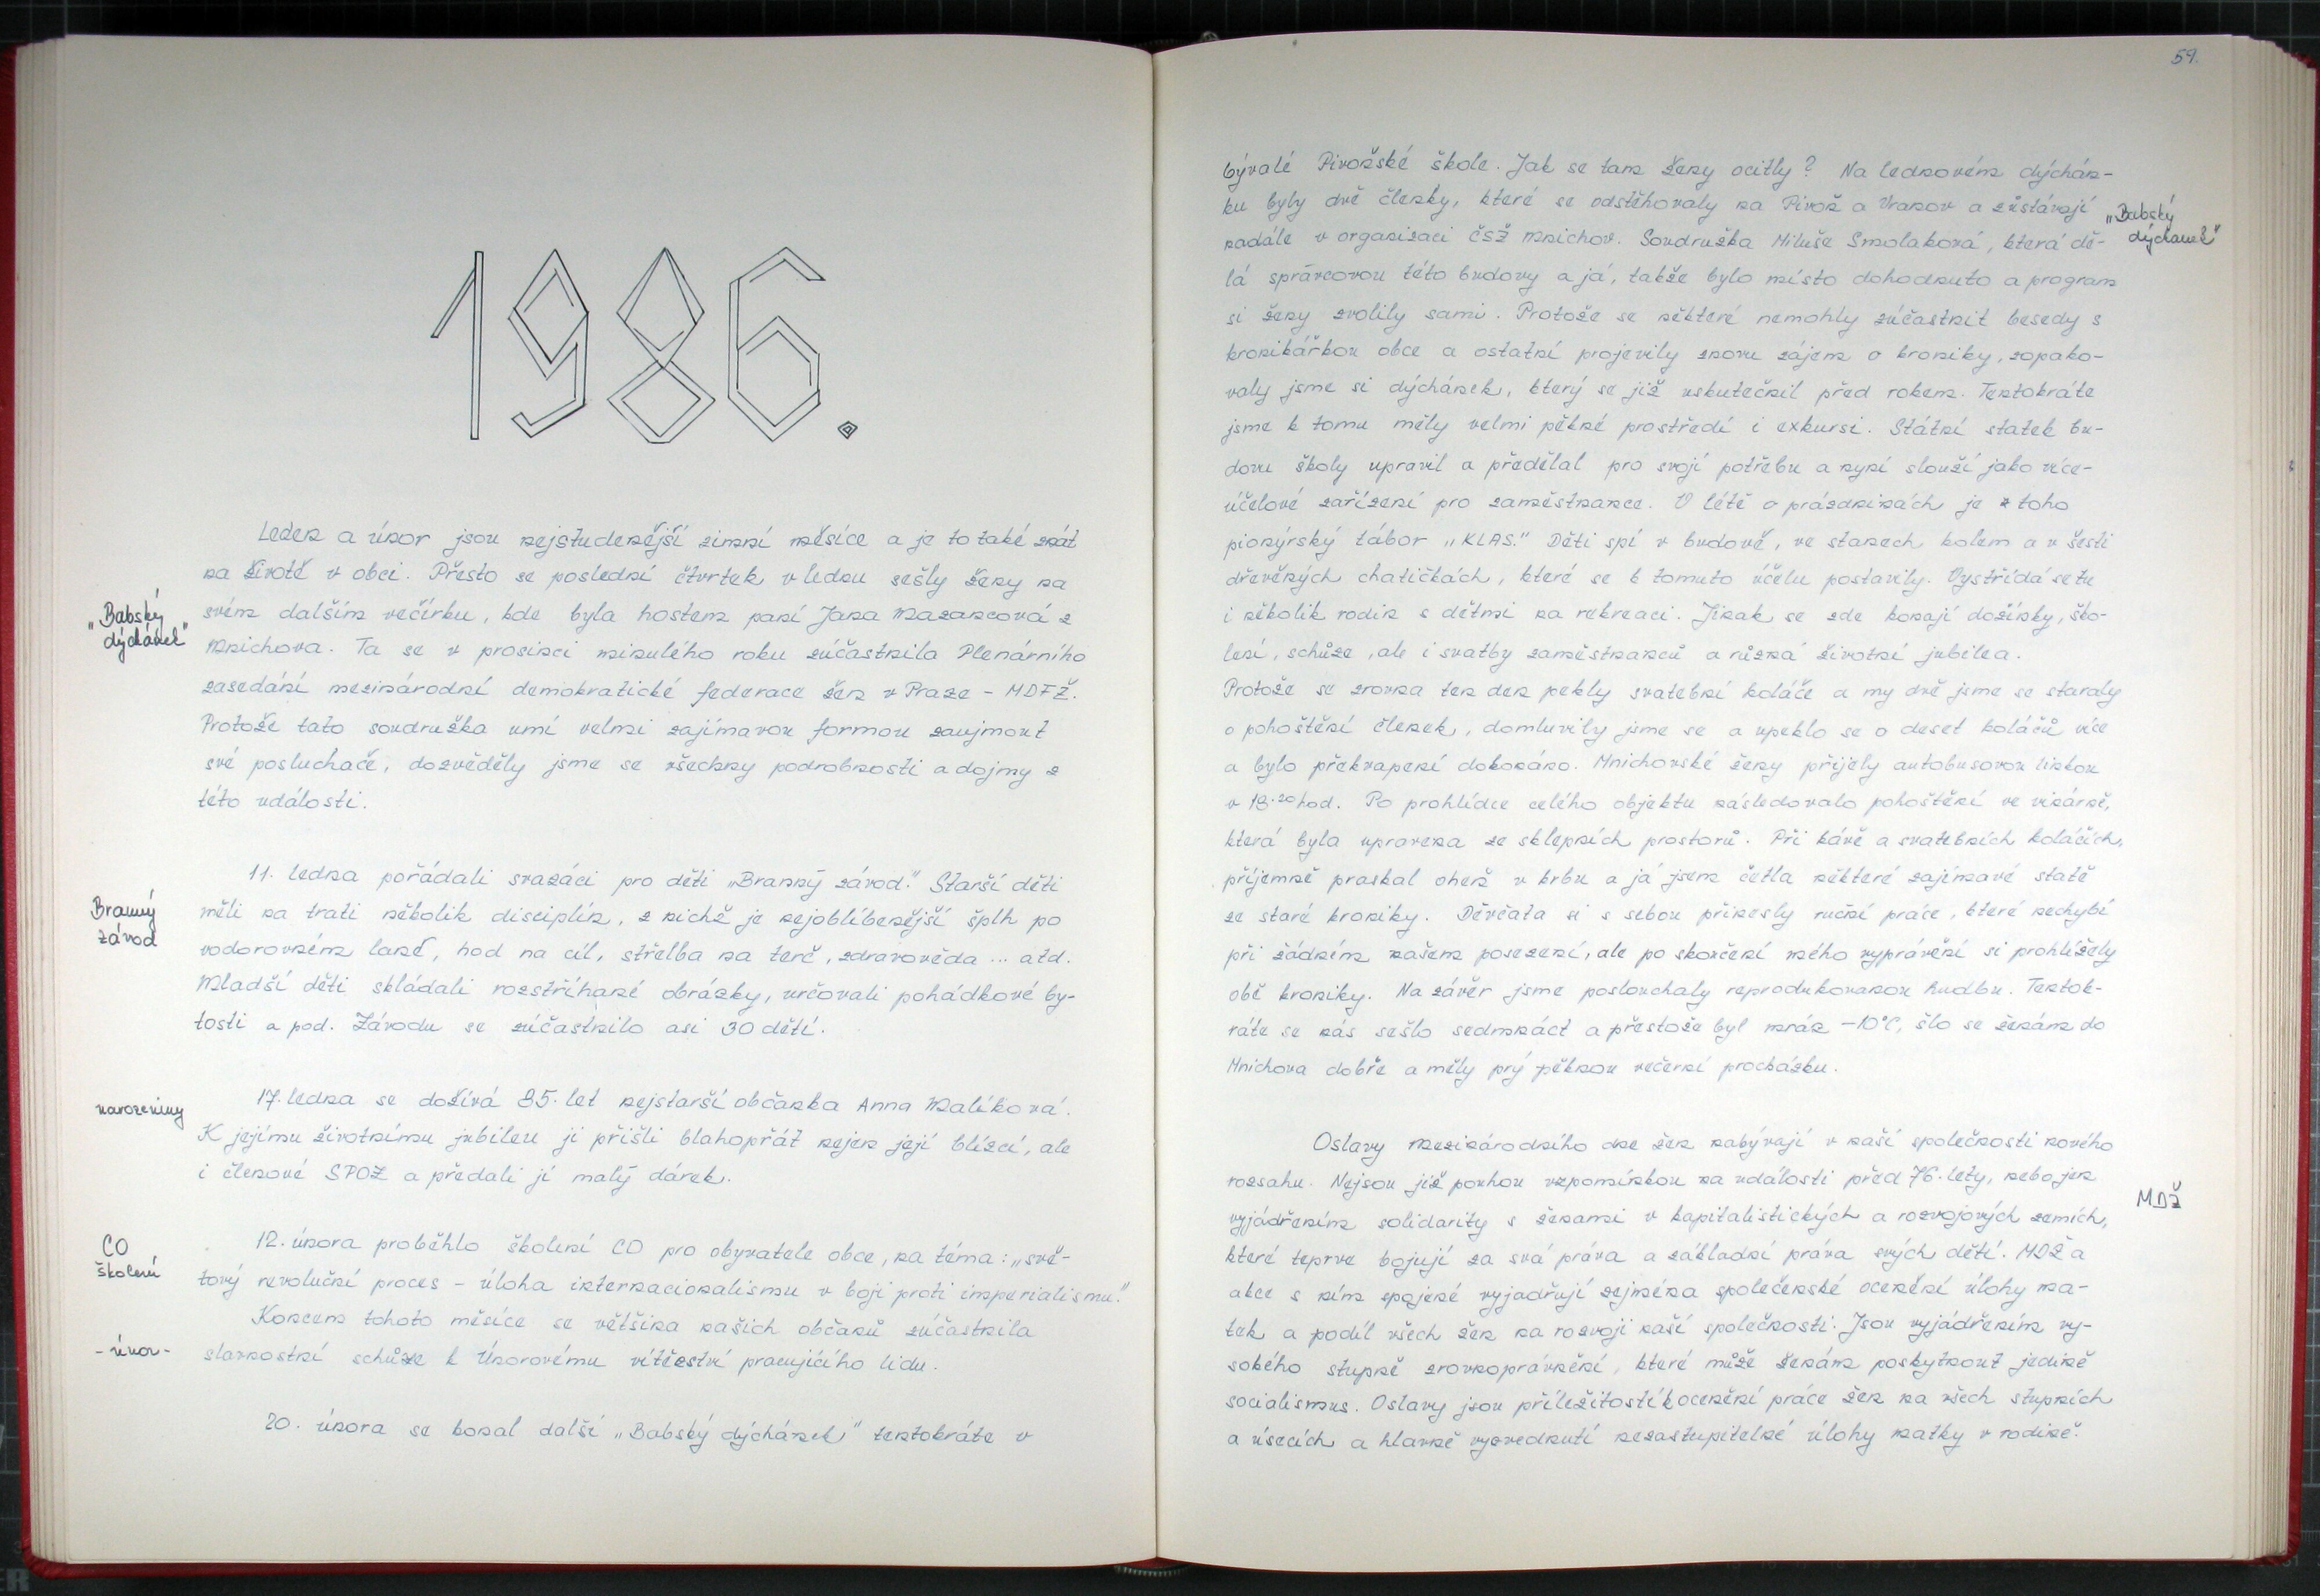 1986.
Leden a únor jsou nejstudenější zimní měsíce a je to také znát
na životě v obci. Přesto se poslední čtvrtek v lednu sešly ženy na
"Babský
dýchánek"
svém dalším večírku, kde byla hostem paní Jana Mazancová z
Mnichova. Ta se v prosinci minulého roku zúčastnila Plenárního
zasedání mezinárodní demokratické federace žen v Praze - MDFŽ.
Protože tato soudružka umí velmi zajímavou formou zaujmout
své posluchače, dozvěděly jsme se všechny podrobnosti a dojmy z
této události.
11. ledna pořádali svazáci pro děti „Branný závod." Starší děti
Branný
závod
měli na trati několik disciplín, z nichž je nejoblíbenější šplh po
vodorovném laně, hod na cíl, střelba na terč, zdravověda ... atd.
Mladší děti skládali rozstříhané obrázky, určovali pohádkové by-
tosti a pod. Závodu se zúčastnilo asi 30 dětí.
narozeniny
17. ledna se dožívá 85. let nejstarší občanka Anna Malíková.
K jejímu životnímu jubileu ji přišli blahopřát nejen její blízcí, ale
i členové SPOZ a předali jí malý dárek.
CO
školení
12. února proběhlo školení CO pro obyvatele obce, na téma: „svě-
tový revoluční proces - úloha internacionalismu v boji proti imperialismu."
Koncem tohoto měsíce se většina našich občanů zúčastnila
- únor -
slavnostní schůze k Únorovému vítězství pracujícího lidu.
20. února se konal další „Babský dýchánek" tentokráte v
59.
bývalé Pivoňské škole. Jak se tam ženy ocitly? Na lednovém dýchán-
ku byly dvě členky, které se odstěhovaly na Pivoň a Vranov a zůstávají
„Babský
dýchánek"
nadále v organizaci ČSŽ Mnichov. Soudružka Miluše Smolaková, která dě-
lá správcovou této budovy a já, takže bylo místo dohodnuto a program
si ženy zvolily sami. Protože se některé nemohly zúčastnit besedy s
kronikářkou obce a ostatní projevily znovu zájem o kroniky, zopako-
valy jsme si dýchánek, který se již uskutečnil před rokem. Tentokráte
jsme k tomu měly velmi pěkné prostředí i exkursi. Státní statek bu-
dovu školy upravil a předělal pro svojí potřebu a nyní slouží jako více-
účelové zařízení pro zaměstnance. V létě o prázdninách je z toho
pionýrský tábor „KLAS." Děti spí v budově, ve stanech kolem a v šesti
dřevěných chatičkách, které se k tomuto účelu postavily. Vystřídá se tu
i několik rodin s dětmi na rekreaci. Jinak se zde konají dožínky, ško-
lení, schůze, ale i svatby zaměstnanců a různá životní jubilea.
Protože se zrovna ten den pekly svatební koláče a my dvě jsme se staraly
o pohoštění členek, domluvily jsme se a upeklo se o deset koláčů více
a bylo překvapení dokonáno. Mnichovské ženy přijely autobusovou linkou
v 18.20 hod. Po prohlídce celého objektu následovalo pohoštění ve vinárně,
která byla upravena ze sklepních prostorů. Při kávě a svatebních koláčích,
příjemně praskal oheň v krbu a já jsem četla některé zajímavé statě
ze staré kroniky. Děvčata si s sebou přinesly ruční práce, které nechybí
při žádném našem posezení, ale po skončení mého vyprávění si prohlížely
obě kroniky. Na závěr jsme poslouchaly reprodukovanou hudbu. Tentok-
ráte se nás sešlo sedmnáct a přestože byl mráz -10°C, šlo se ženám do
Mnichova dobře a měly prý pěknou večerní procházku.
Oslavy Mezinárodního dne žen nabývají v naší společnosti nového
rozsahu. Nejsou již pouhou vzpomínkou na události před 76. lety, nebo jen
MDŽ
vyjádřením solidarity s ženami v kapitalistických a rozvojových zemích,
které teprve bojují za svá práva a základní práva svých dětí. MDŽ a
akce s ním spojené vyjadřují zejména společenské ocenění úlohy ma-
tek a podíl všech žen na rozvoji naší společnosti. Jsou vyjádřením vy-
sokého stupně zrovnoprávnění, které může ženám poskytnout jedině
socialismus. Oslavy jsou příležitostí k ocenění práce žen na všech stupních
a úsecích a hlavně vyzvednutí nezastupitelné úlohy matky v rodině.